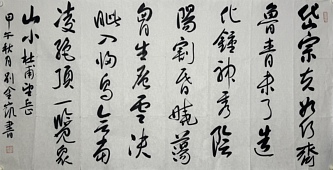 岱宗夫如何齐
鲁青未了造
化钟神秀阴
阳割昏晓荡
胸生层云决
眦入归鸟会当
凌绝顶一览众
山小杜甫望岳
甲午秋月刘金凯书